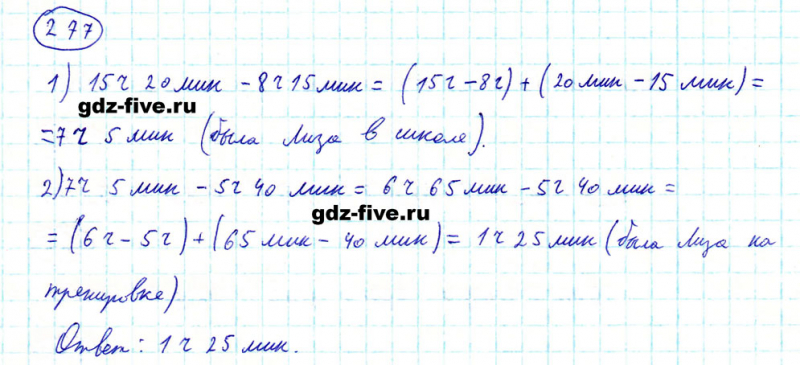 277
1) 15ч 20мин - 8ч15мин = (15ч-8ч)+(20мин-15 мин)=
gdz-five.ru
=7ч 5 мин (была Лиза в школе).
2)7ч 5мин - 5ч 40 мин = 6ч 65мин - 5ч 40 мин =
gdz-five.ru
=(6ч-5ч)+(65мин-40мин)= 1ч 25мин (была Лиза на
тренировке)
Ответ: 1ч 25мин.